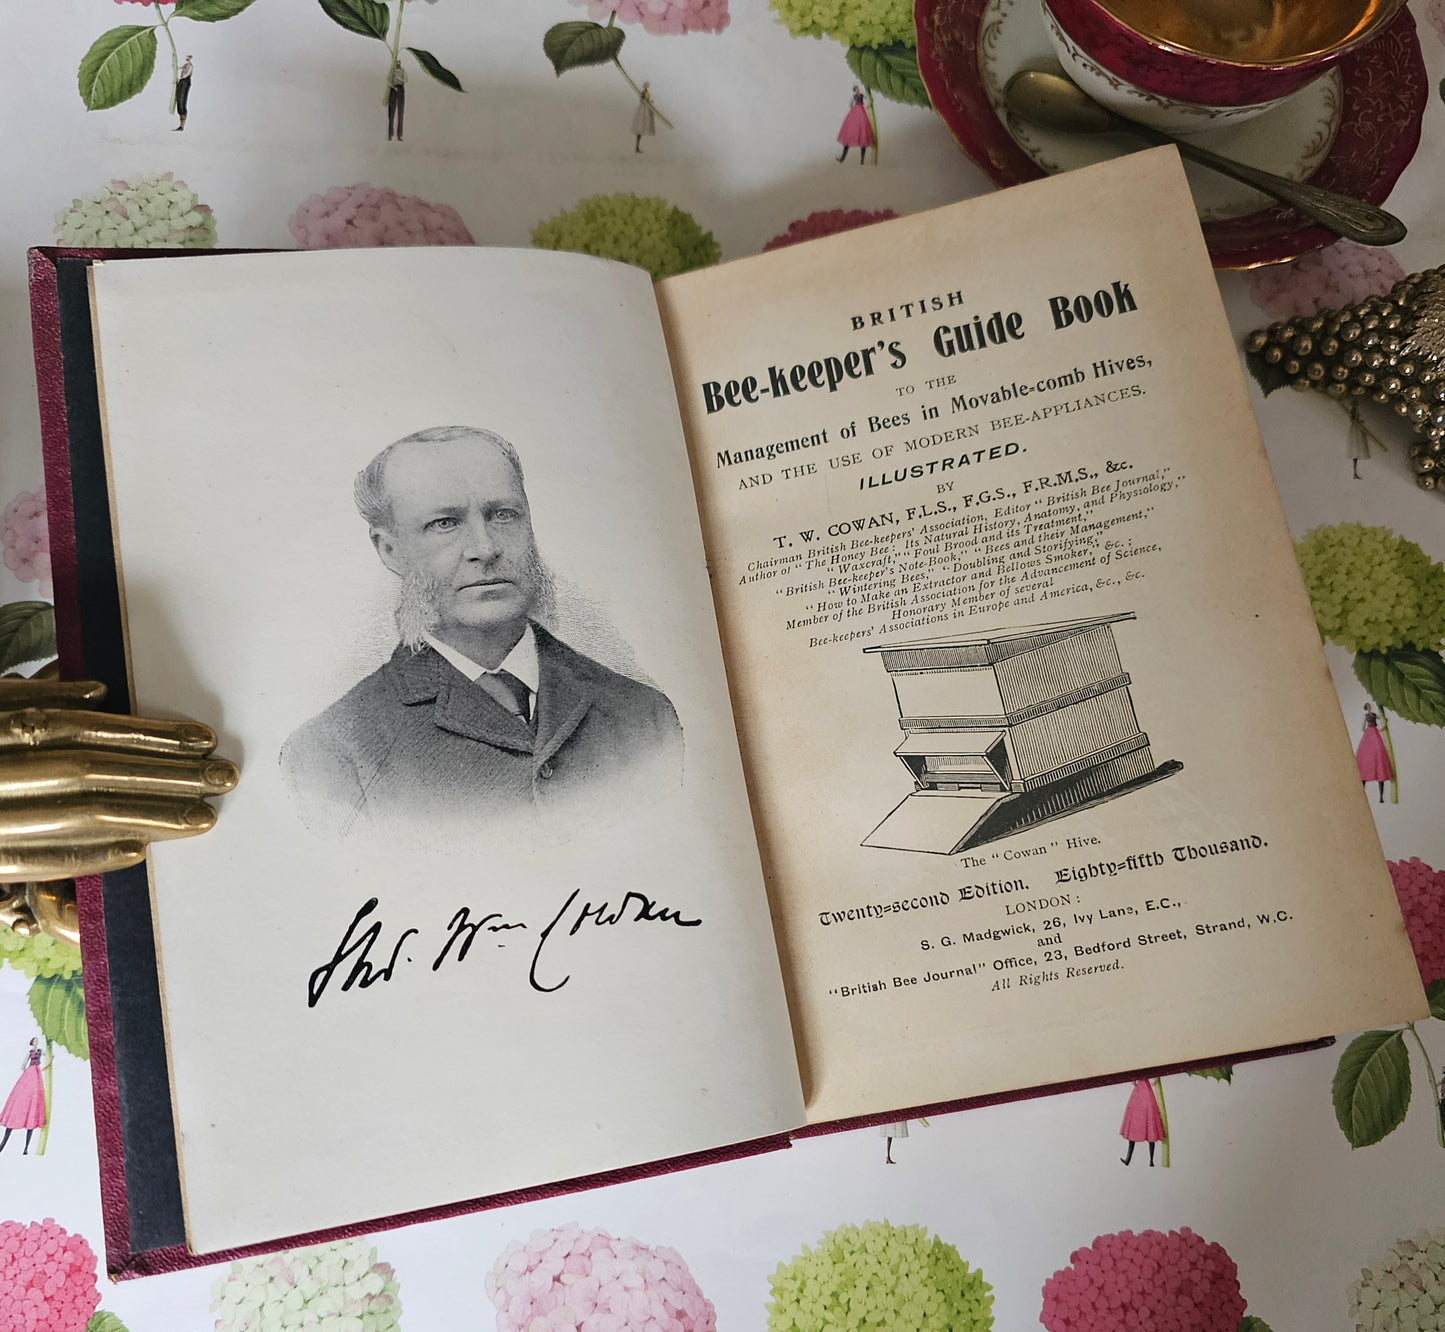 Thos. Wm Cowan
BRITISH
Bee-keeper's Guide Book
TO THE
Management of Bees in Movable=comb Hives,
AND THE USE OF MODERN BEE-APPLIANCES.
ILLUSTRATED.
BY
T. W. COWAN, F.L.S., F.G.S., F.R.M.S., &c.
Chairman British Bee-keepers' Association, Editor "British Bee Journal,"
Author of "The Honey Bee: Its Natural History, Anatomy, and Physiology,"
"Waxcraft," "Foul Brood and its Treatment,"
"British Bee-keeper's Note-Book," "Bees and their Management,"
"Wintering Bees," "Doubling and Storifying,"
"How to Make an Extractor and Bellows Smoker," &c.;
Member of the British Association for the Advancement of Science,
Honorary Member of several
Bee-keepers' Associations in Europe and America, &c., &c.
The "Cowan" Hive.
Twenty=second Edition. Eighty=fifth Thousand.
LONDON:
S. G. Madgwick, 26, Ivy Lane, E.C.,
and
"British Bee Journal" Office, 23, Bedford Street, Strand, W.C.
All Rights Reserved.